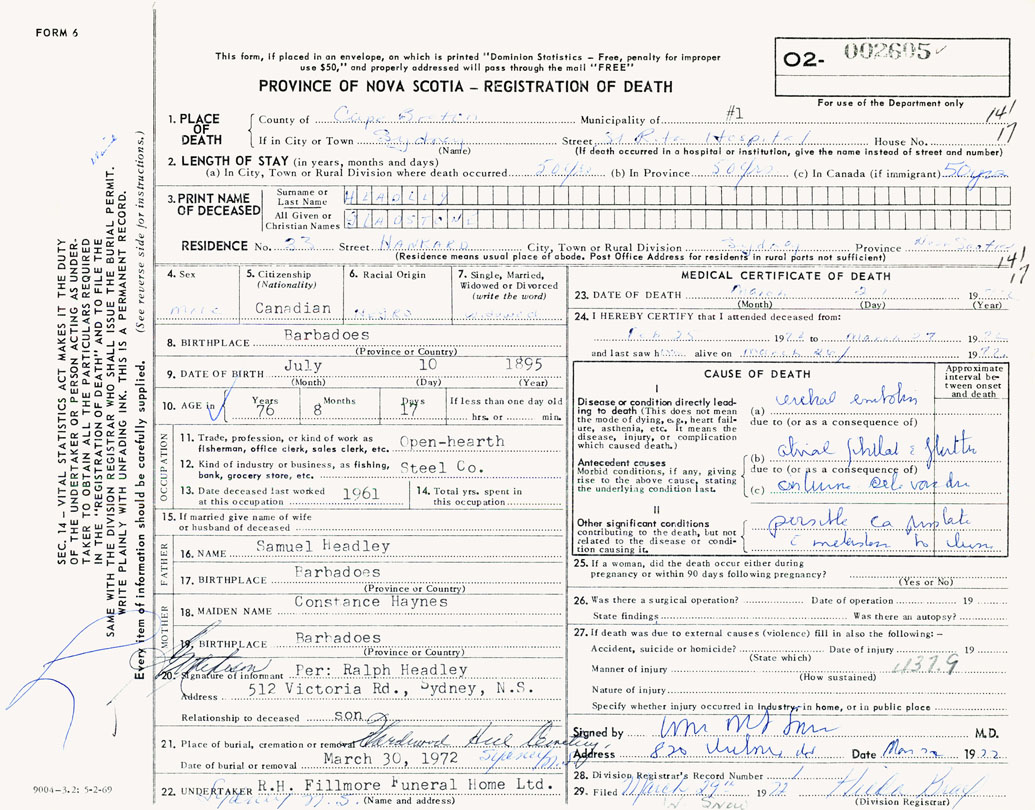 FORM 6
This form, if placed in an envelope, on which is printed "Dominion Statistics - Free, penalty for improper
use $50," and properly addressed will pass through the mail "FREE"
PROVINCE OF NOVA SCOTIA - REGISTRATION OF DEATH
O2- 002605
For use of the Department only
1. PLACE OF DEATH
County of Cape Breton Municipality of #1
If in City or Town Sydney Street St Rita Hospital House No.
(Name) (If death occurred in a hospital or institution, give the name instead of street and number)
141
17
2. LENGTH OF STAY (in years, months and days)
(a) In City, Town or Rural Division where death occurred 50 yrs (b) In Province 50 yrs (c) In Canada (if immigrant) 50 yrs
3. PRINT NAME OF DECEASED
Surname or Last Name HEADLEY
All Given or Christian Names GLADSTONE
RESIDENCE No. 33 Street HANKARD City, Town or Rural Division Sydney Province Nova Scotia
(Residence means usual place of abode. Post Office Address for residents in rural parts not sufficient)
141
17
4. Sex
Male
5. Citizenship
(Nationality)
Canadian
6. Racial Origin
NEGRO
7. Single, Married,
Widowed or Divorced
(write the word)
8. BIRTHPLACE Barbadoes
(Province or Country)
9. DATE OF BIRTH July 10 1895
(Month) (Day) (Year)
10. AGE in
Years Months Days If less than one day old
76 8 17 hrs. or min.
OCCUPATION
11. Trade, profession, or kind of work as
fisherman, office clerk, sales clerk, etc. Open-hearth
12. Kind of industry or business, as fishing,
bank, grocery store, etc. Steel Co.
13. Date deceased last worked
at this occupation 1961
14. Total yrs. spent in
this occupation
15. If married give name of wife
or husband of deceased
FATHER
16. NAME Samuel Headley
17. BIRTHPLACE Barbadoes
(Province or Country)
MOTHER
18. MAIDEN NAME Constance Haynes
19. BIRTHPLACE Barbadoes
(Province or Country)
20. Signature of informant Per: Ralph Headley
Address 512 Victoria Rd., Sydney, N.S.
Relationship to deceased son
21. Place of burial, cremation or removal Hardwood Hill Cemetery, Sydney N.S.
Date of burial or removal March 30, 1972
22. UNDERTAKER R.H. Fillmore Funeral Home Ltd.
Sydney N.S. (Name and address)
MEDICAL CERTIFICATE OF DEATH
23. DATE OF DEATH March 27 19
(Month) (Day) (Year)
24. I HEREBY CERTIFY that I attended deceased from:
Feb 25 1972 to March 27 1972
and last saw h alive on March 1972
CAUSE OF DEATH
Approximate
interval be-
tween onset
and death
I
Disease or condition directly lead-
ing to death (This does not mean
the mode of dying, e.g., heart fail-
ure, asthenia, etc. It means the
disease, injury, or complication
which caused death.)
(a)
due to (or as a consequence of)
Antecedent causes
Morbid conditions, if any, giving
rise to the above cause, stating
the underlying condition last.
(b)
due to (or as a consequence of)
(c)
II
Other significant conditions
contributing to the death, but not
related to the disease or condi-
tion causing it.
possible ca prostate
25. If a woman, did the death occur either during
pregnancy or within 90 days following pregnancy?
(Yes or No)
26. Was there a surgical operation? Date of operation 19
State findings Was there an autopsy?
27. If death was due to external causes (violence) fill in also the following: -
Accident, suicide or homicide? Date of injury 19
(State which)
Manner of injury 437.9
(How sustained)
Nature of injury
Specify whether injury occurred in industry, in home, or in public place
Signed by M.D.
Address Date Mar 1972
28. Division Registrar's Record Number 1
29. Filed March 29th 1972
(Division Registrar)
SEC. 14 - VITAL STATISTICS ACT MAKES IT THE DUTY
OF THE UNDERTAKER OR PERSON ACTING AS UNDER-
TAKER TO OBTAIN ALL THE PARTICULARS REQUIRED
IN THE "REGISTRATION OF DEATH" AND TO FILE THE
SAME WITH THE DIVISION REGISTRAR WHO SHALL ISSUE THE BURIAL PERMIT.
WRITE PLAINLY WITH UNFADING INK. THIS IS A PERMANENT RECORD.
Every item of information should be carefully supplied. (See reverse side for instructions.)
9004-3.2: 5-2-69